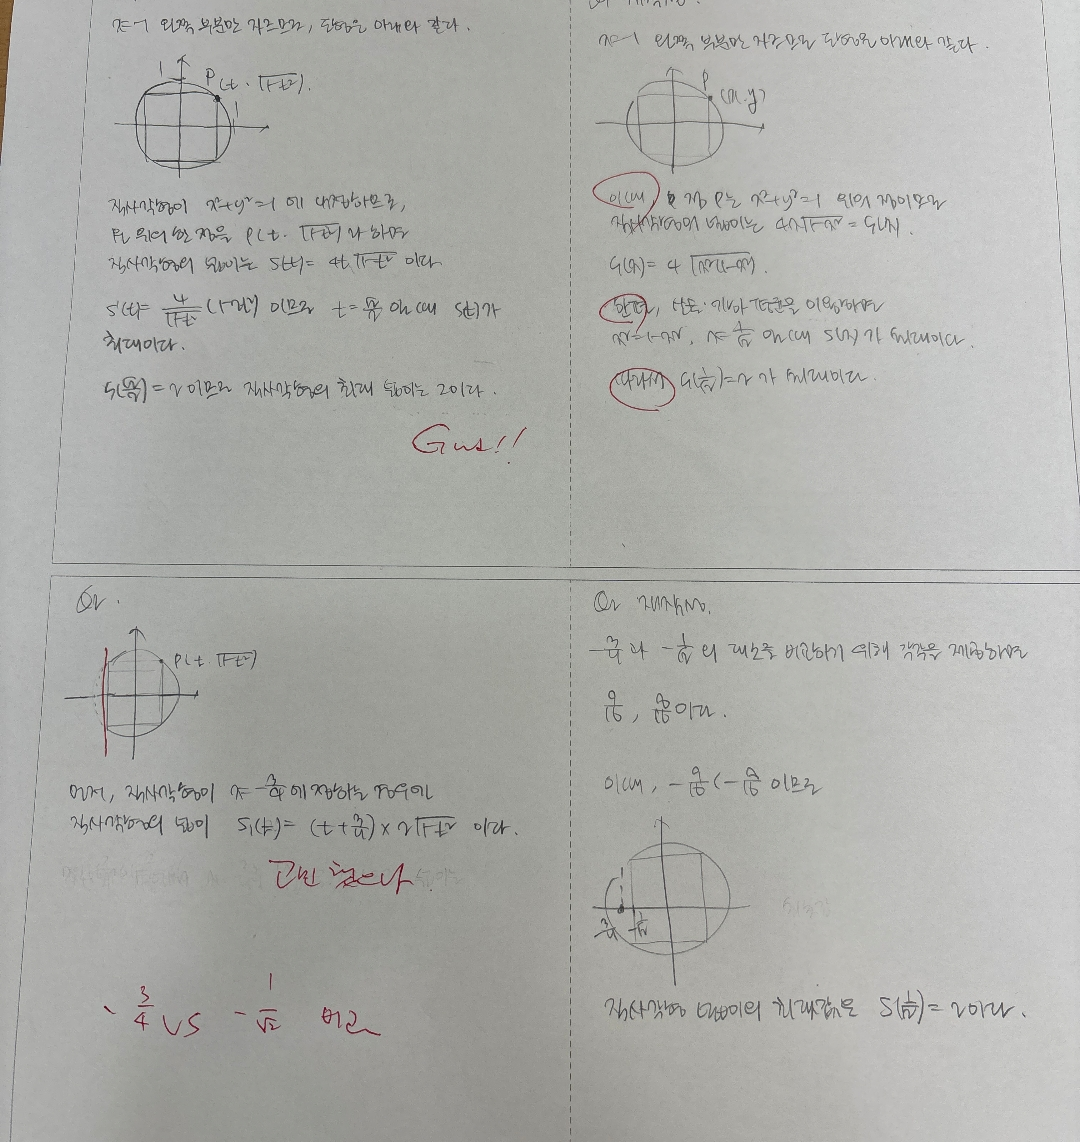 x=-1 왼쪽 부분만 자르므로, 단면은 아래와 같다.
1
P(t, √1-t²).
1
직사각형이 x²+y²=1 에 내접하므로,
원 위의 한 점을 P(t, √1-t²)라 하면
직사각형의 넓이는 S(t)= 4t√1-t² 이다
S'(t)= 4/√1-t² (1-2t²) 이므로 t= √2/2 일 때 S(t)가
최대이다.
S(√2/2)=2 이므로 직사각형의 최대 넓이는 2이다.
Good!!
x=-1 왼쪽 부분만 자르므로 단면은 아래와 같다.
P
(x, y)
이때, 점 P는 x²+y²=1 위의 점이므로
직사각형의 넓이는 4x√1-x² = S(x).
S(x)= 4√x²(1-x²).
한편, 산술·기하 평균을 이용하면
x²=1-x², x= 1/√2 일 때 S(x)가 최대이다.
따라서 S(1/√2)=2 가 최대이다.
Q2.
P(t, √1-t²)
먼저, 직사각형이 x=-3/4에 접하는 경우인
직사각형의 넓이 S₁(t)= (t+3/4)×2√1-t² 이다.
고민 했으나
-3/4 VS -1/√2 비교
Q2 재작성.
-3/4과 -1/√2의 대소를 비교하기 위해 각각을 제곱하면
9/16, 8/16이다.
이때, -9/16<-8/16 이므로
직사각형 넓이의 최대값은 S(1/√2)=2이다.